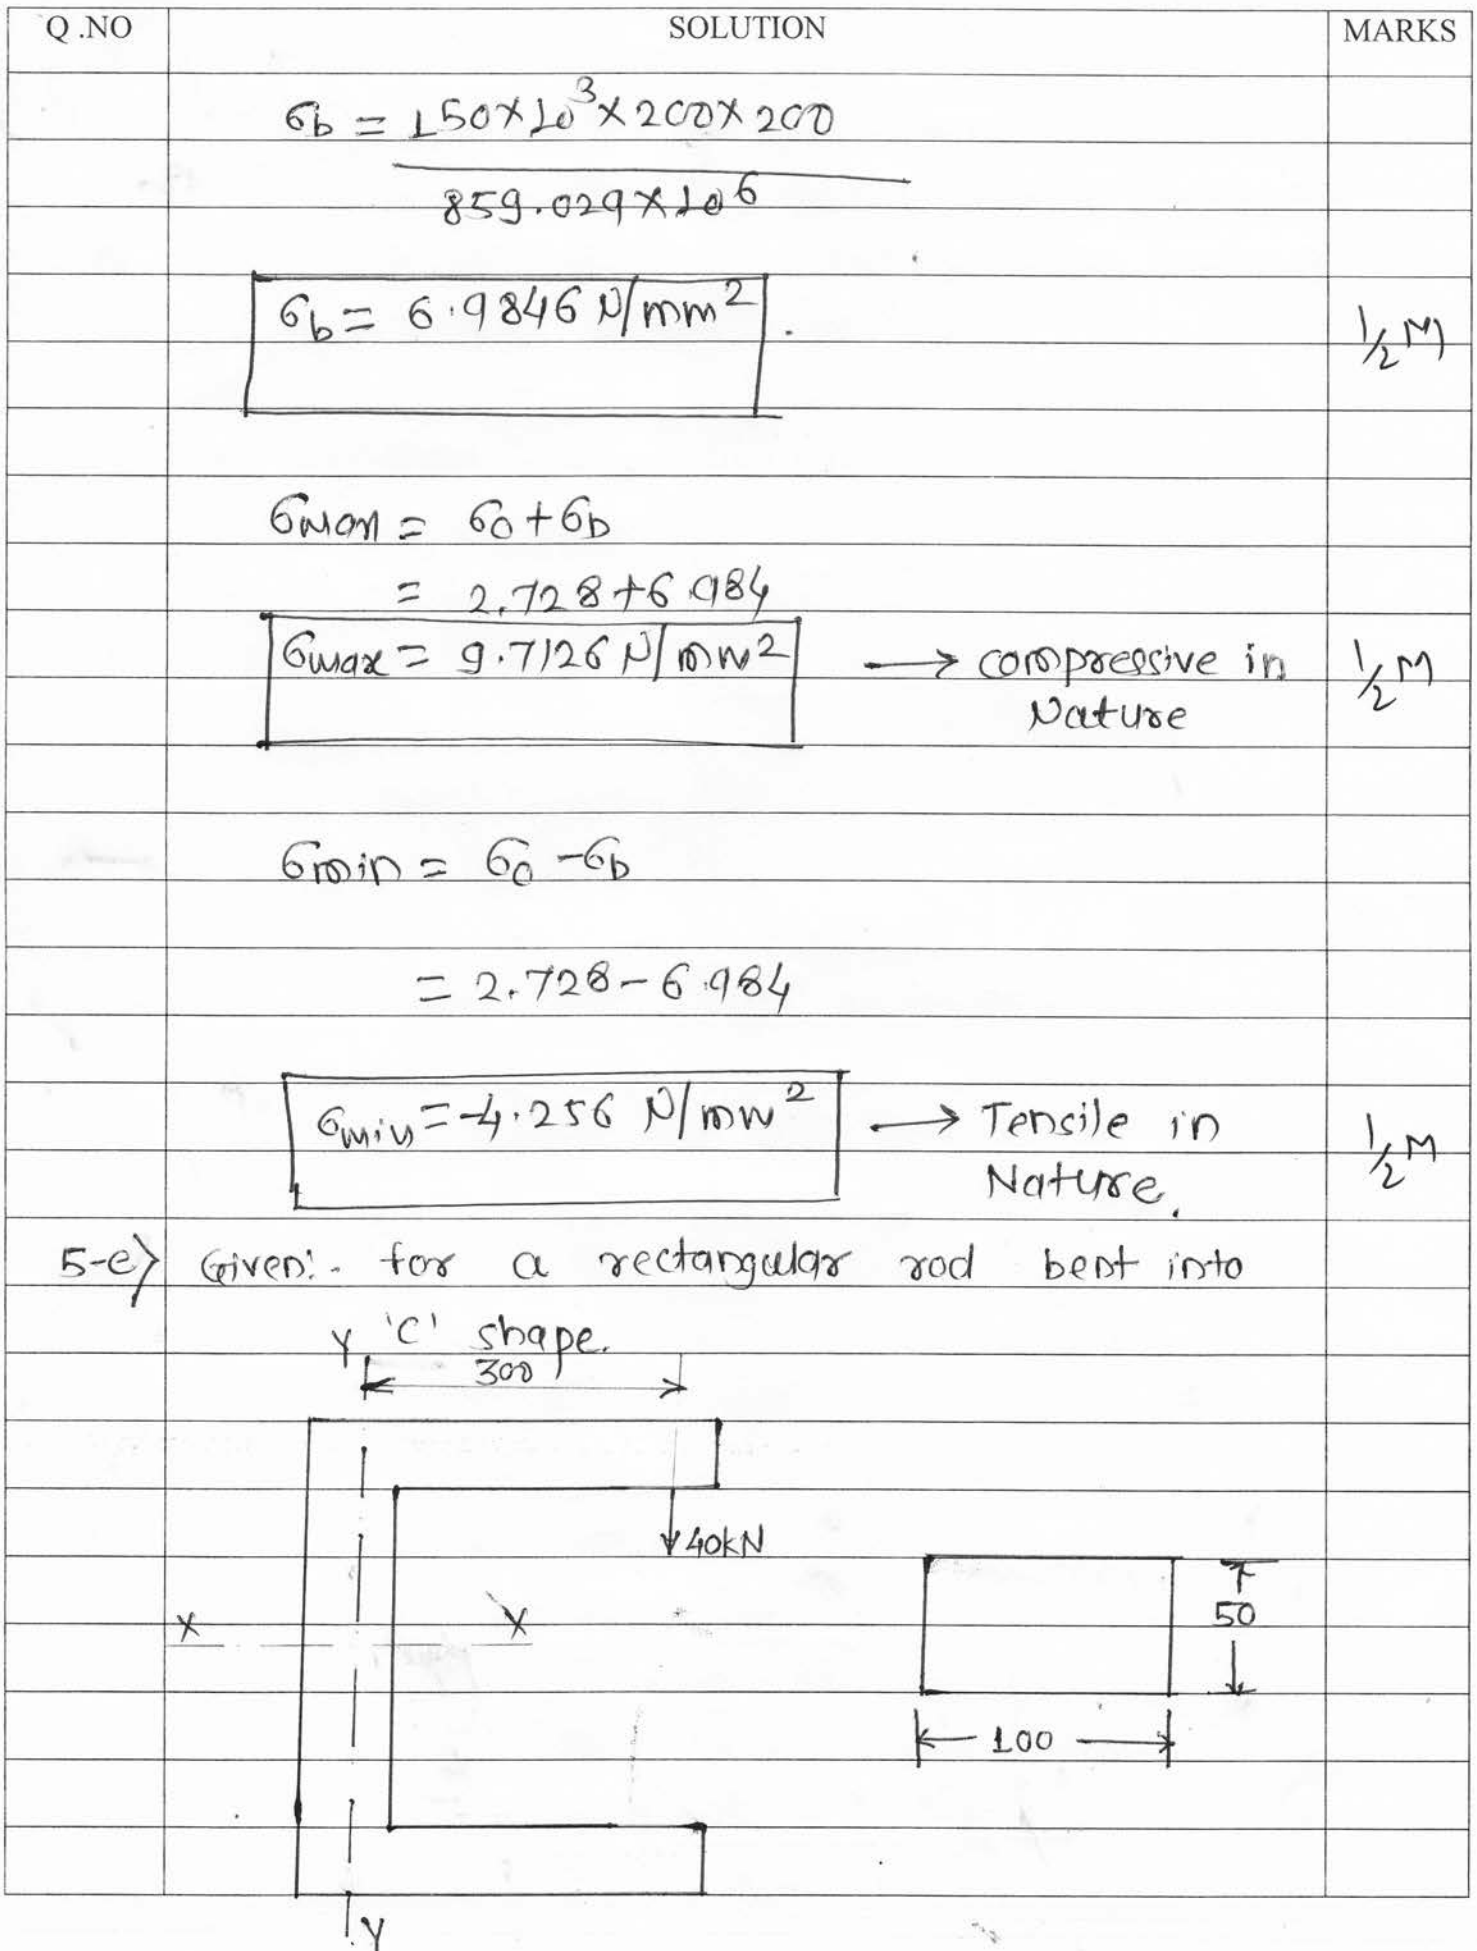 Q .NO SOLUTION MARKS
σb = 150×10³×200×200
859.029×10⁶
σb = 6.9846 N/mm² .
1/2 M
σmax = σo + σb
= 2.728+6.984
σmax = 9.7126 N/mm² → compressive in
Nature
1/2 M
σmin = σo - σb
= 2.728 - 6.984
σmin = -4.256 N/mm² → Tensile in
Nature.
1/2 M
5-e) Given:- for a rectangular rod bent into
'C' shape.
Y
300
40kN
X X
50
100
Y